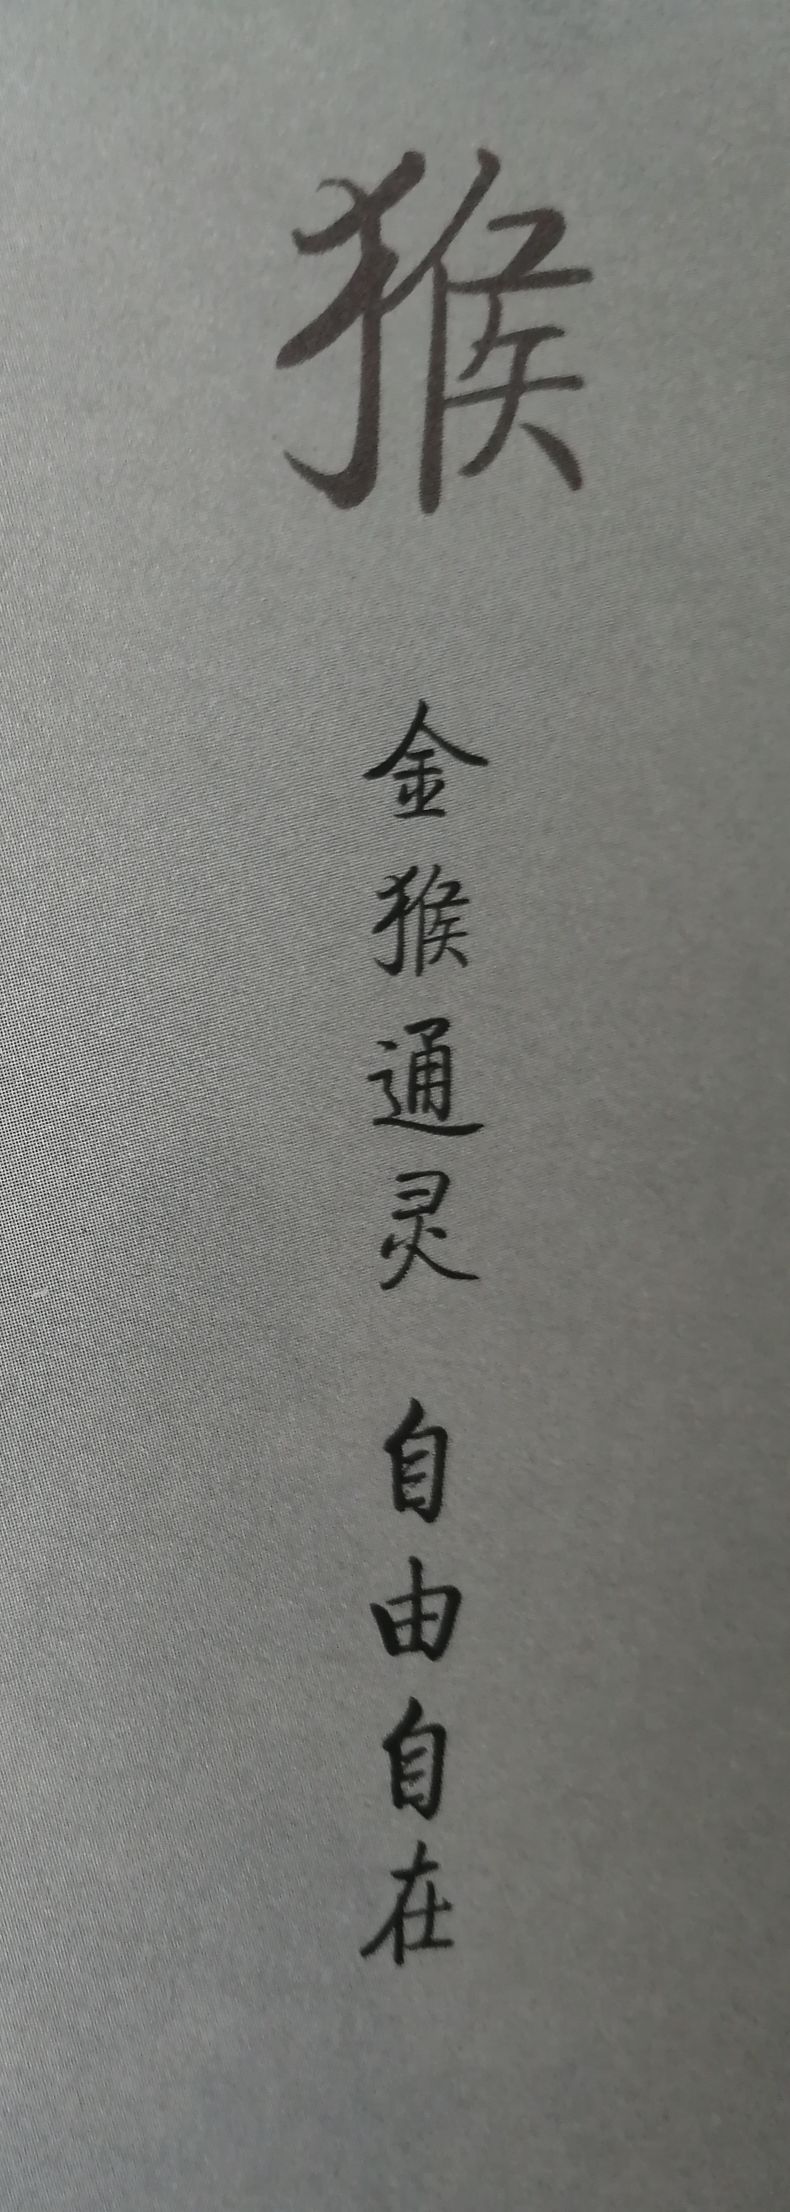 猴
金猴通灵 自由自在